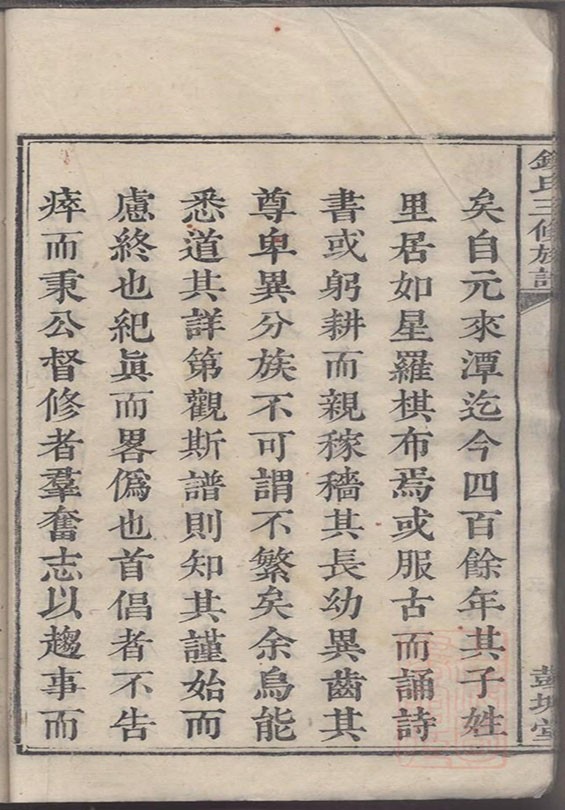 矣自元來潭迄今四百餘年其子姓
里居如星羅棋布焉或服古而誦詩
書或躬耕而親稼穡其長幼異齒其
尊卑異分族不可謂不繁矣余烏能
悉道其詳第觀斯譜則知其謹始而
慮終也紀眞而畧僞也首倡者不告
瘁而秉公督修者羣奮志以趨事而
氏三修族譜
彭城堂